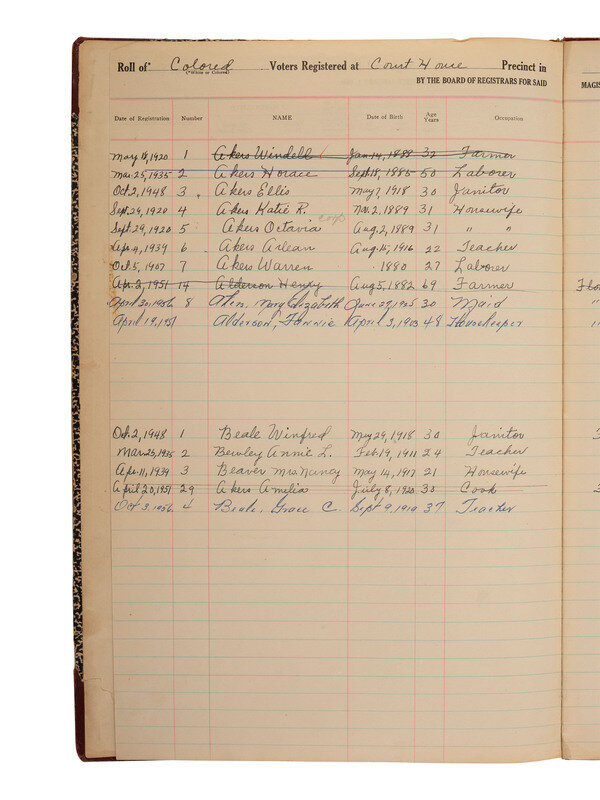 Roll of* Colored Voters Registered at Court House Precinct in
(*White or Colored)
BY THE BOARD OF REGISTRARS FOR SAID MAGIS
Date of Registration Number NAME Date of Birth Age Years Occupation
May 18, 1920 1 Akers Windell Jan. 14, 1888 32 Farmer
Mar. 25, 1935 2 Akers Horace Sept. 18, 1885 50 Laborer
Oct. 2, 1948 3 Akers Ellis May 7, 1918 30 Janitor
Sept. 29, 1920 4 Akers Katie R. Nov. 2, 1889 31 Housewife
Sept. 29, 1920 5 Akers Octavia Aug. 2, 1889 31 " "
Sept. 4, 1939 6 Akers Arlean Aug. 15, 1916 22 Teacher
Oct. 5, 1907 7 Akers Warren 1880 27 Laborer
Apr. 2, 1951 14 Alderson Henry Aug 5, 1882 69 Farmer
April 30, 1956 8 Mary Elizabeth June 27, 1925 30 Maid "
April 19, 1951 Alderson, Fannie April 3, 1903 48 Housekeeper
Oct. 2, 1948 1 Beale Winfred May 29, 1918 30 Janitor
Mar. 25, 1935 2 Bewley Annie L. Feb. 19, 1911 24 Teacher
Apr. 11, 1939 3 Beaver Mrs Nancy May 14, 1917 21 Housewife
April 20, 1951 29 Akers Amelias July 8, 1920 30 Cook
Oct 3, 1956 4 Beale, Grace C. Sept 9, 1919 37 Teacher